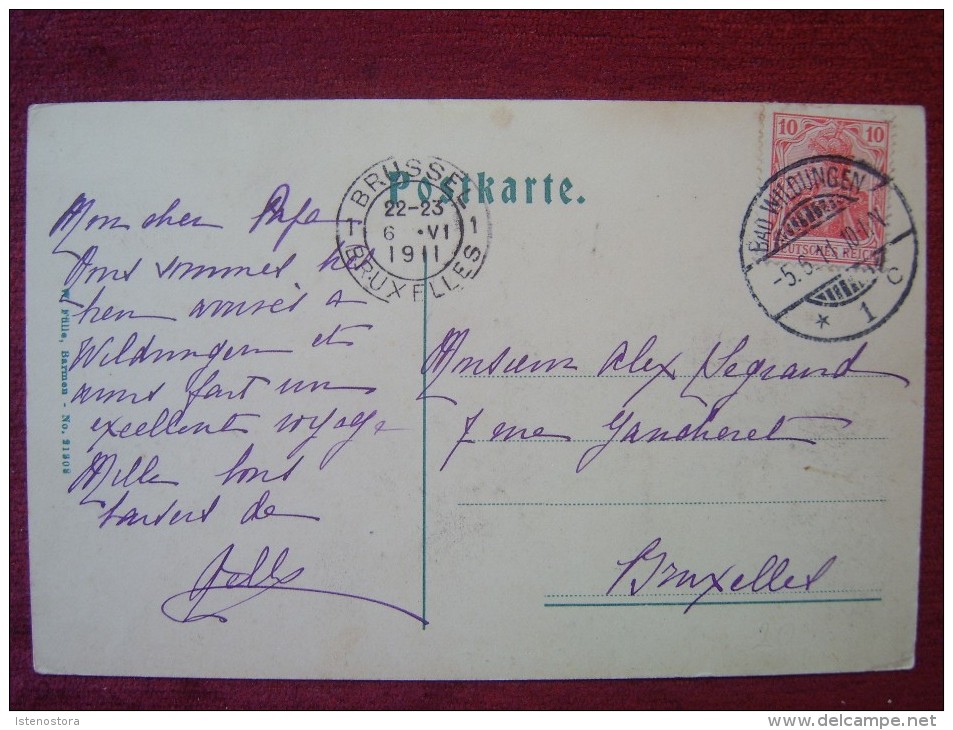 Postkarte.
BRUSSEL
1 1
22-23
6 ·VI
1911
BRUXELLES
10 10
DEUTSCHES REICH
BAD WILDUNGEN
-5.6.
* 1 C
Mon cher
sommes
bien arrivés a
Wildungen et
avons fait un
excellent voyage
Mille bons
baisers de
Monsieur Alex Legrand
7 rue Gaucheret
Bruxelles
W. Fülle, Barmen - No. 21302
Istenostora
www.delcampe.net